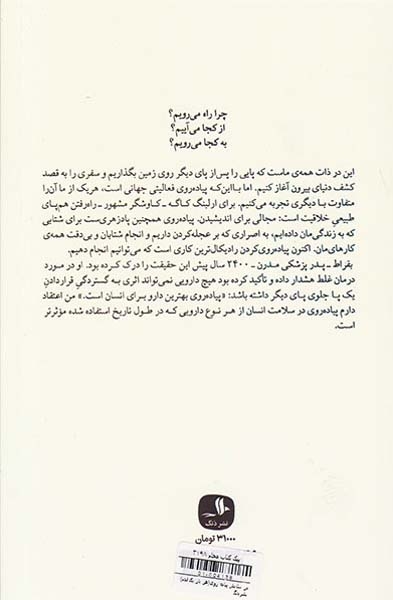 چرا راه می‌رویم؟
از کجا می‌آییم؟
به کجا می‌رویم؟
این در ذات همه‌ی ماست که پایی را پس از پای دیگر روی زمین بگذاریم و سفری را به قصد
کشف دنیای بیرون آغاز کنیم. اما با این‌که پیاده‌روی فعالیتی جهانی است، هریک از ما آن را
متفاوت با دیگری تجربه می‌کنیم. برای ارلینگ کاگه ـ کاوشگر مشهور ـ راه‌رفتن هم‌پای
طبیعیِ خلاقیت است: مجالی برای اندیشیدن. پیاده‌روی همچنین پادزهری‌ست برای شتابی
که به زندگی‌مان داده‌ایم، به اصراری که بر عجله‌کردن داریم و انجام شتابان و بی‌دقت همه‌ی
کارهای‌مان. اکنون پیاده‌روی‌کردن رادیکال‌ترین کاری است که می‌توانیم انجام دهیم.
بقراط ـ پدر پزشکی مدرن ـ ۲۴۰۰ سال پیش این حقیقت را درک کرده بود. او در مورد
درمان غلط هشدار داده و تأکید کرده بود هیچ دارویی نمی‌تواند اثری به گستردگیِ قراردادنِ
یک پا جلوی پای دیگر داشته باشد: «پیاده‌روی بهترین دارو برای انسان است.» من اعتقاد
دارم پیاده‌روی در سلامت انسان از هر نوع دارویی که در طول تاریخ استفاده شده مؤثرتر
است.
نشر ذنگ
۳۱۰۰۰ تومان